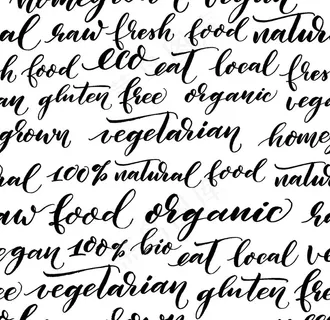 homegrown vegan
al raw fresh food natur
h food eco eat local fres
an gluten free organic vege
grown vegetarian home
ral 100% natural food natu
aw food organic ra
egan 100% bio eat local ve
ee vegetarian gluten fre